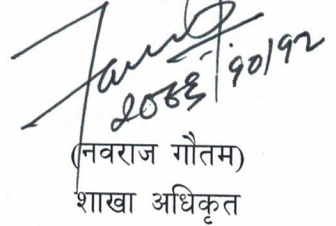 २०८६।१०।१२
(नवराज गौतम)
शाखा अधिकृत